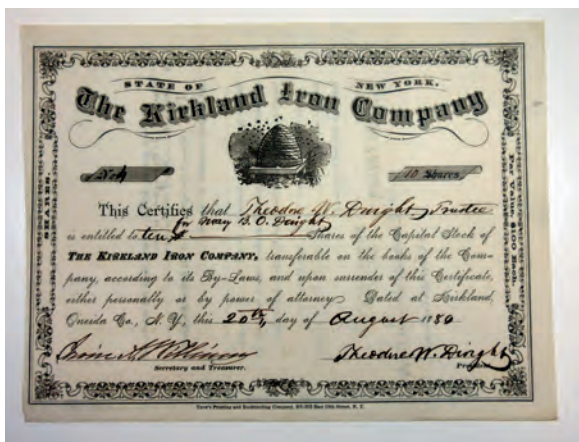 STATE OF NEW YORK.
The Kirkland Iron Company
No 4
10 Shares
SHARES.
Par Value, $100 Each.
This Certifies that Theodore W. Dwight Trustee
for Mary B. O. Dwight
is entitled to ten Shares of the Capital Stock of
THE KIRKLAND IRON COMPANY, transferable on the books of the Com-
pany, according to its By-Laws, and upon surrender of this Certificate,
either personally or by power of attorney Dated at Kirkland,
Oneida Co., N. Y., this 20th, day of August 1880
Theodore W. Dwight
Secretary and Treasurer.
Printing and Bookbinding Company, East Street, N. Y.